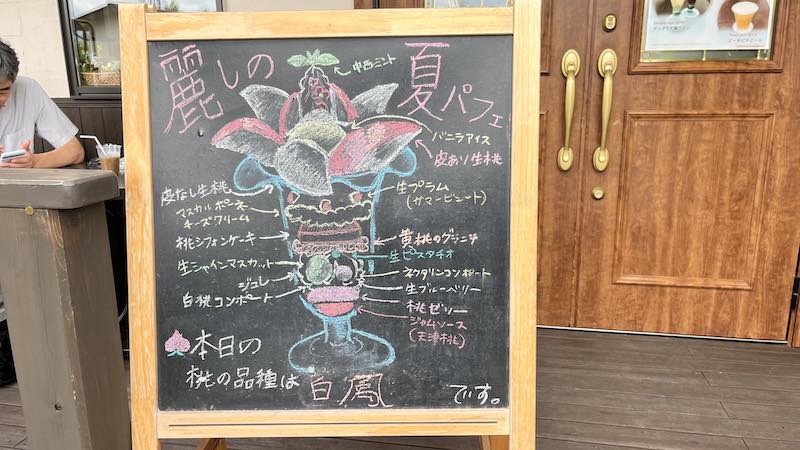 麗しの
夏パフェ
中西ミント
バニラアイス
皮あり生桃
皮なし生桃
マスカルポーネ
チーズクリーム
桃シフォンケーキ
生シャインマスカット
ジュレ
白桃コンポート
生プラム
(サマービュート)
黄桃のグラニテ
生ピスタチオ
ネクタリンコンポート
生ブルーベリー
桃ゼリー
ジャムソース
(天津桃)
本日の
桃の品種は 白鳳 です。